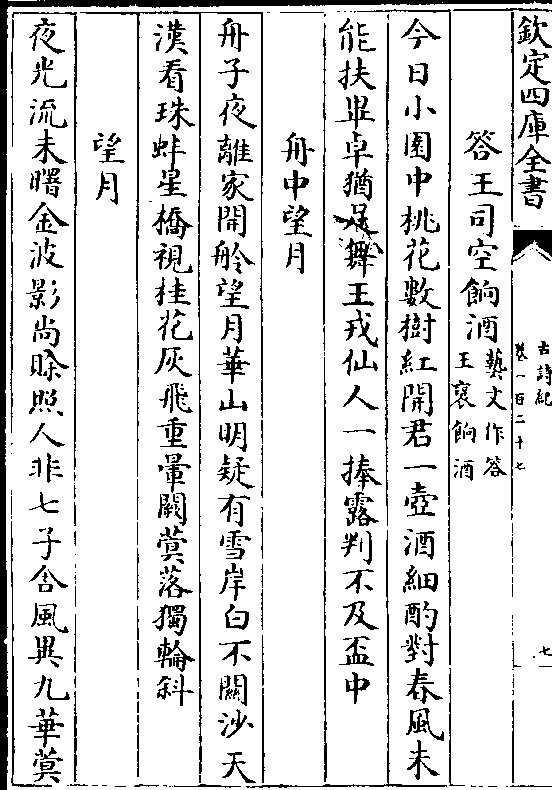 欽定四庫全書
古詩紀
卷一百二十七
七
答王司空餉酒藝文作答
王褒餉酒
今日小園中桃花數樹紅開君一壺酒細酌對春風未
能扶畢卓猶足舞王戎仙人一捧露判不及盃中
舟中望月
舟子夜離家開舲望月華山明疑有雪岸白不關沙天
漢看珠蚌星橋視桂花灰飛重暈闕蓂落獨輪斜
望月
夜光流未曙金波影尚賒照人非七子含風異九華蓂